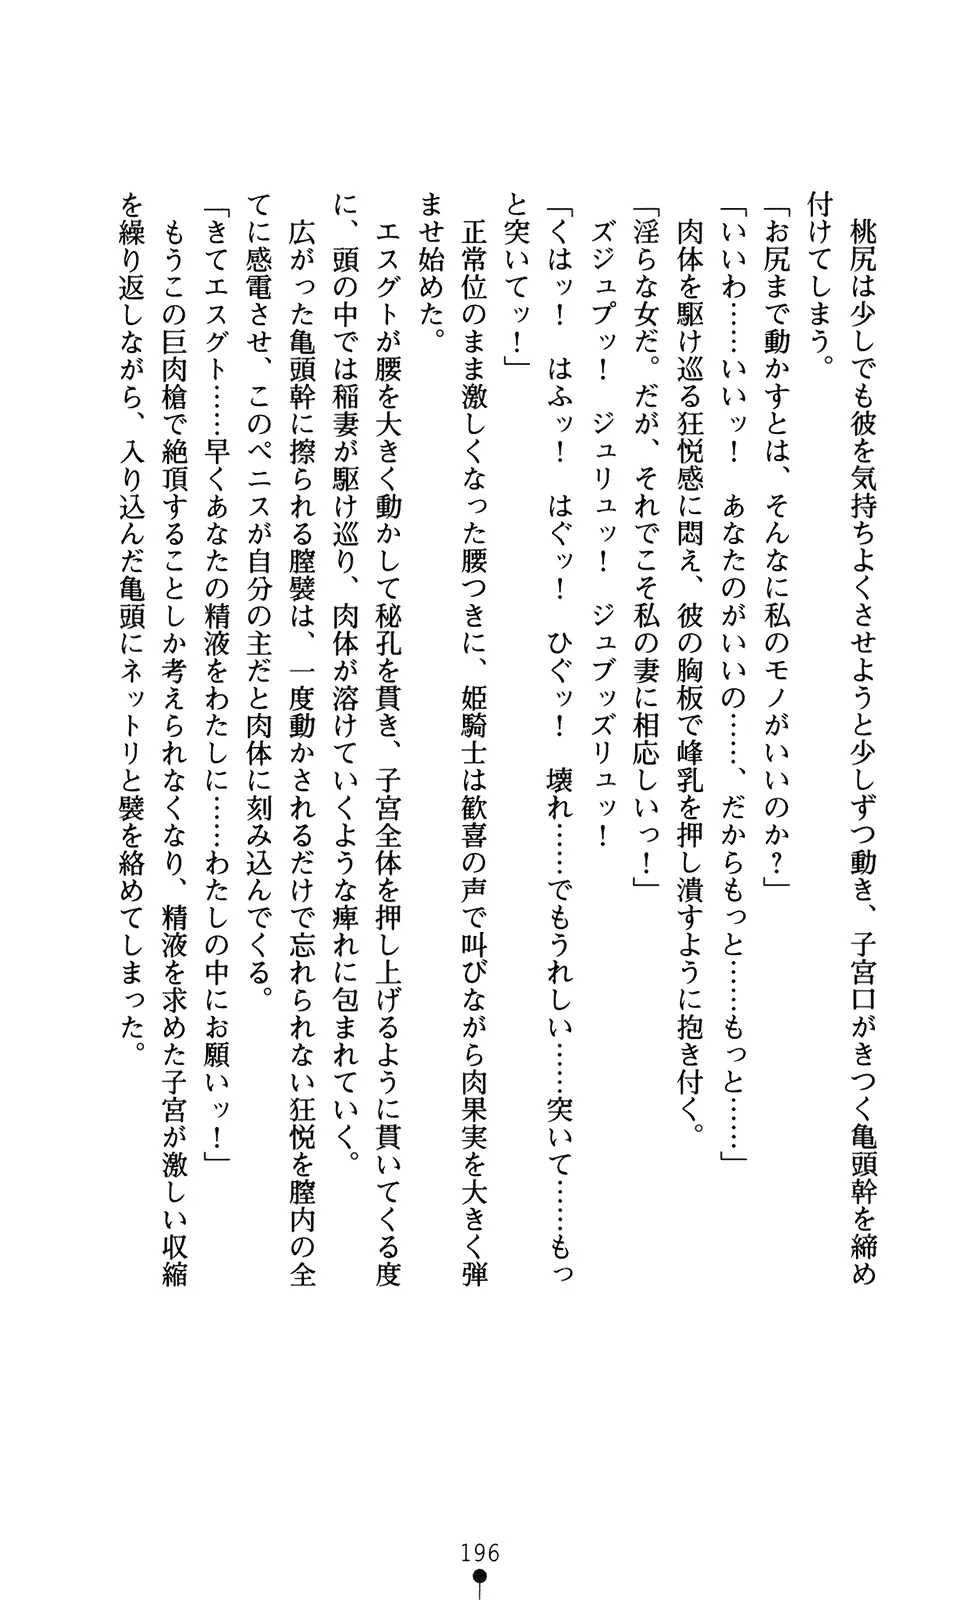 桃尻は少しでも彼を気持ちよくさせようと少しずつ動き、子宮口がきつく亀頭幹を締め
付けてしまう。
「お尻まで動かすとは、そんなに私のモノがいいのか？」
「いいわ……いいッ！　あなたのがいいの……、だからもっと……もっと……」
　肉体を駆け巡る狂悦感に悶え、彼の胸板で峰乳を押し潰すように抱き付く。
「淫らな女だ。だが、それでこそ私の妻に相応しいっ！」
　ズジュプッ！　ジュリュッ！　ジュブッズリュッ！
「くはッ！　はふッ！　はぐッ！　ひぐッ！　壊れ……でもうれしい……突いて……もっ
と突いてッ！」
　正常位のまま激しくなった腰つきに、姫騎士は歓喜の声で叫びながら肉果実を大きく弾
ませ始めた。
　エスグトが腰を大きく動かして秘孔を貫き、子宮全体を押し上げるように貫いてくる度
に、頭の中では稲妻が駆け巡り、肉体が溶けていくような痺れに包まれていく。
　広がった亀頭幹に擦られる膣襞は、一度動かされるだけで忘れられない狂悦を膣内の全
てに感電させ、このペニスが自分の主だと肉体に刻み込んでくる。
「きてエスグト……早くあなたの精液をわたしに……わたしの中にお願いッ！」
　もうこの巨肉槍で絶頂することしか考えられなくなり、精液を求めた子宮が激しい収縮
を繰り返しながら、入り込んだ亀頭にネットリと襞を絡めてしまった。
196